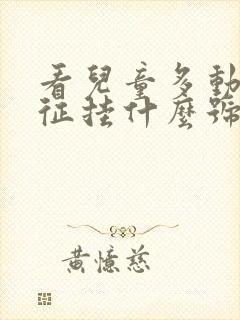 看兒童多動
征挂什麼號
黃憶慈